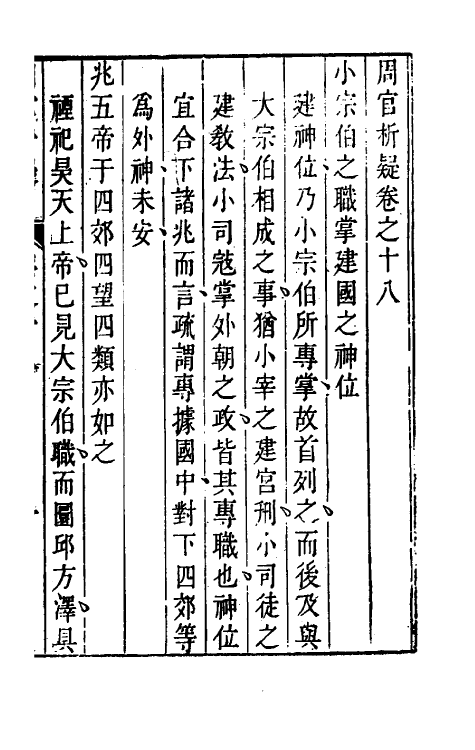 周官析疑卷之十八
小宗伯之職掌建國之神位
建神位乃小宗伯所專掌故首列之而後及與
大宗伯相成之事猶小宰之建宫刑小司徒之
建教法小司寇掌外朝之政皆其專職也神位
宜合下諸兆而言疏謂專據國中對下四郊等
爲外神未安
兆五帝于四郊四望四類亦如之
禋祀昊天上帝已見大宗伯職而圜邱方澤具